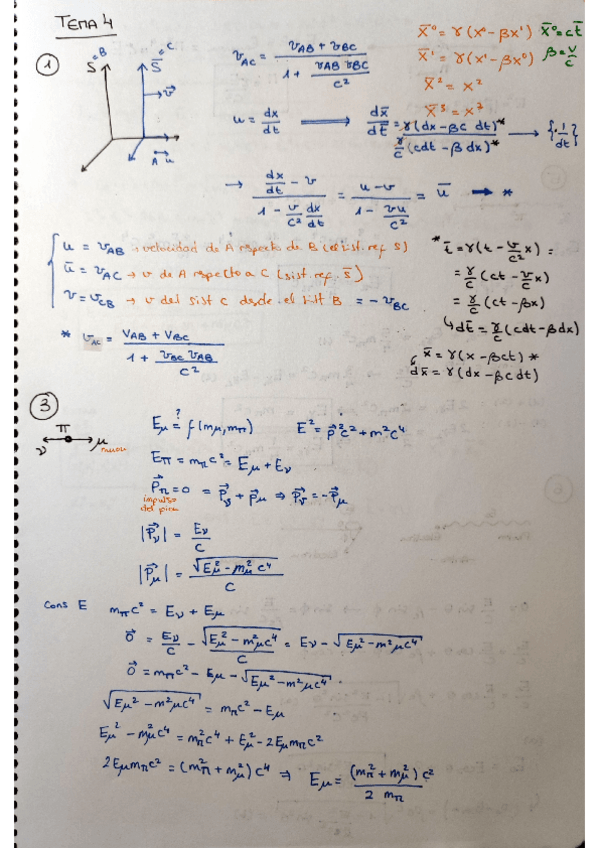 TEMA 4
X̄⁰ = γ(X⁰ - βX¹) X̄⁰ = ct̄
X̄¹ = γ(X¹ - βX⁰) β = v/c
X̄² = X²
X̄³ = X³
① S B S̄ C v A u
v_AC = (v_AB + v_BC) / (1 + v_AB v_BC / c²)
u = dx/dt ⟹ dx̄/dt̄ = γ(dx - βc dt)* / (γ/c (cdt - β dx)*) → {· 1/dt}
→ (dx/dt - v) / (1 - v/c² dx/dt) = (u - v) / (1 - vu/c²) = ū → *
u = v_AB → velocidad de A respecto de B (sist. ref S)
ū = v_AC → v de A respecto a C (sist. ref. S̄)
v = v_CB → v del sist C desde el sist B = - v_BC
* t̄ = γ(t - v/c² x) =
= γ/c (ct - v/c x)
= γ/c (ct - βx)
↳ dt̄ = γ/c (cdt - βdx)
x̄ = γ(x - βct) *
dx̄ = γ(dx - βc dt)
* v_AC = (V_AB + V_BC) / (1 + v_BC v_AB / c²)
③ π ν μ muon
E_μ =? f(m_μ, m_π) E² = p⃗²c² + m²c⁴
E_π = m_π c² = E_μ + E_ν
P⃗_π = 0 = P⃗_ν + P⃗_μ ⇒ P⃗_ν = -P⃗_μ
impulso
del pion
|P⃗_ν| = E_ν / c
|P⃗_μ| = √(E_μ² - m_μ² c⁴) / c
Cons E m_π c² = E_ν + E_μ
0⃗ = E_ν/c - √(E_μ² - m²_μ c⁴) / c = E_ν - √(E_μ² - m²_μ c⁴)
0⃗ = m_π c² - E_μ - √(E_μ² - m²_μ c⁴)
√(E_μ² - m²_μ c⁴) = m_π c² - E_μ
E_μ² - m²_μ c⁴ = m²_π c⁴ + E²_μ - 2E_μ m_π c²
2E_μ m_π c² = (m²_π + m²_μ) c⁴ ⇒ E_μ = (m²_π + m²_μ) c² / 2 m_π